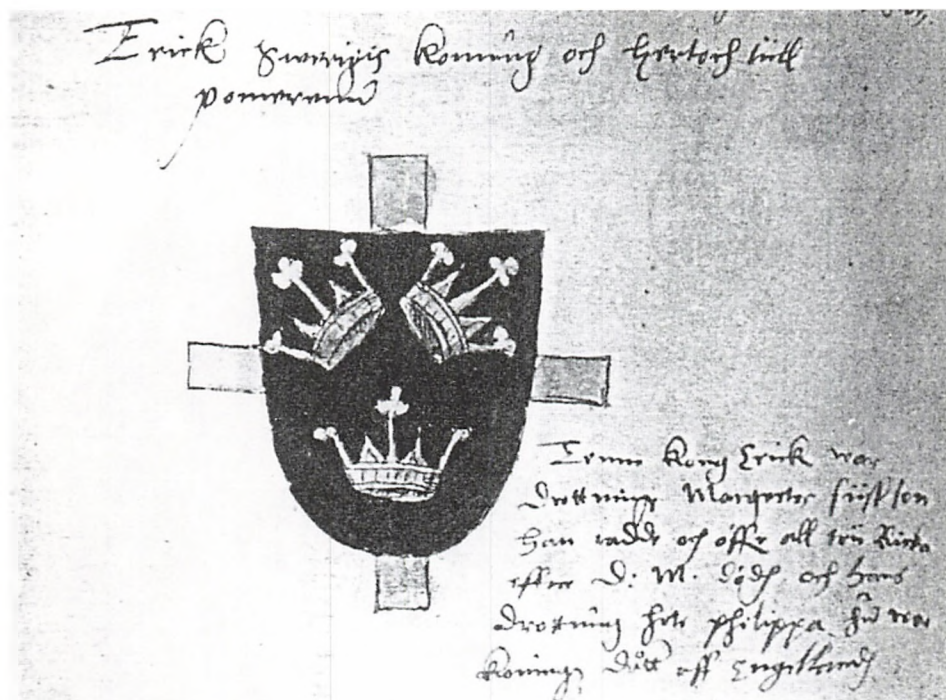 Erick Swerigis Konung och Hertoch till
pomeren
Tenne kong Erick war
drottning Margretes söst son
han radde och öffr all try Ricke
effter D: M. dödh och hans
drotning hete philippa hu war
konungs dåtter aff Engelland